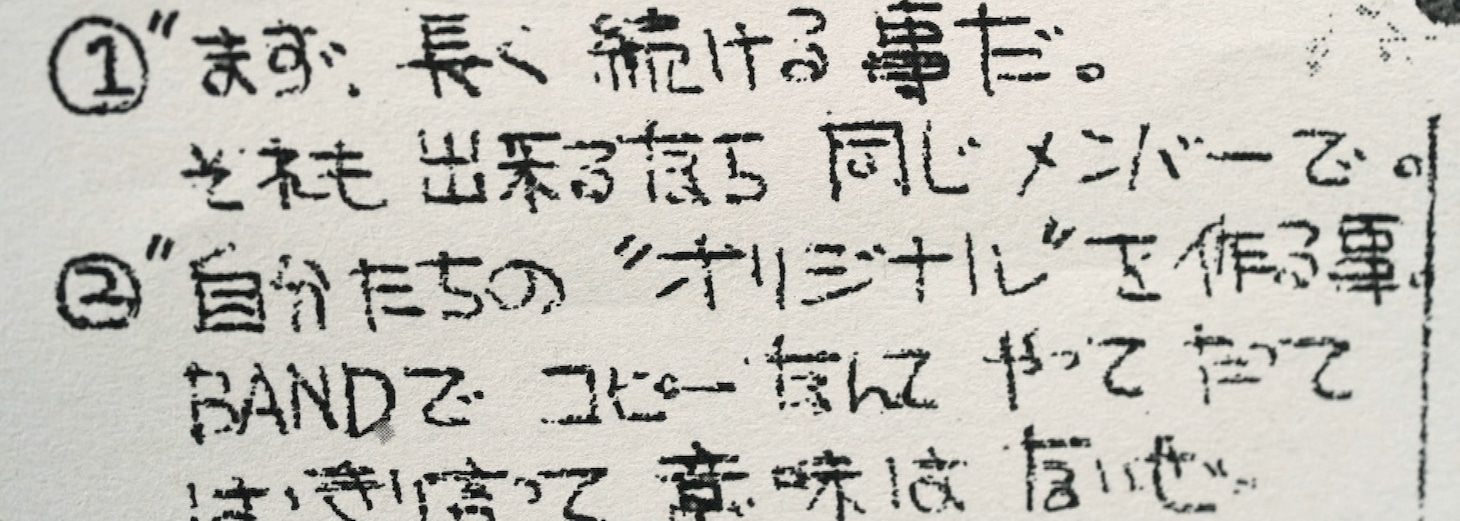 ①"まず、長く続ける事だ。
それも出来るなら同じメンバーで。
②"自分たちの"オリジナル"を作る事。
BANDでコピーなんてやってたって
はっきり言って意味はないぜ。